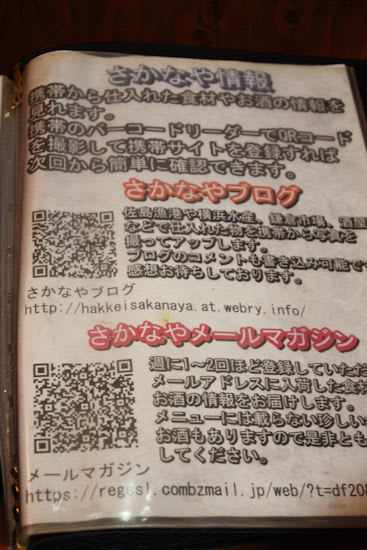 さかなや情報
携帯から仕入れた食材やお酒の情報を
見れます。
携帯のバーコードリーダーでQRコード
を撮影して携帯サイトを登録すれば
次回から簡単に確認できます。
さかなやブログ
佐島漁港や横浜水産、鎌倉市場、酒屋
などで仕入れた物を携帯から写真を
撮ってアップします。
ブログのコメントも書き込み可能です
感想お待ちしております。
さかなやブログ
http://hakkeisakanaya.at.webry.info/
さかなやメールマガジン
週に1〜2回ほど登録していただ
メールアドレスに入荷した食材
お酒の情報をお届けします。
メニューには載らない珍しい
お酒もありますので是非とも
してください。
メールマガジン
https://regssl.combzmail.jp/web/?t=df208